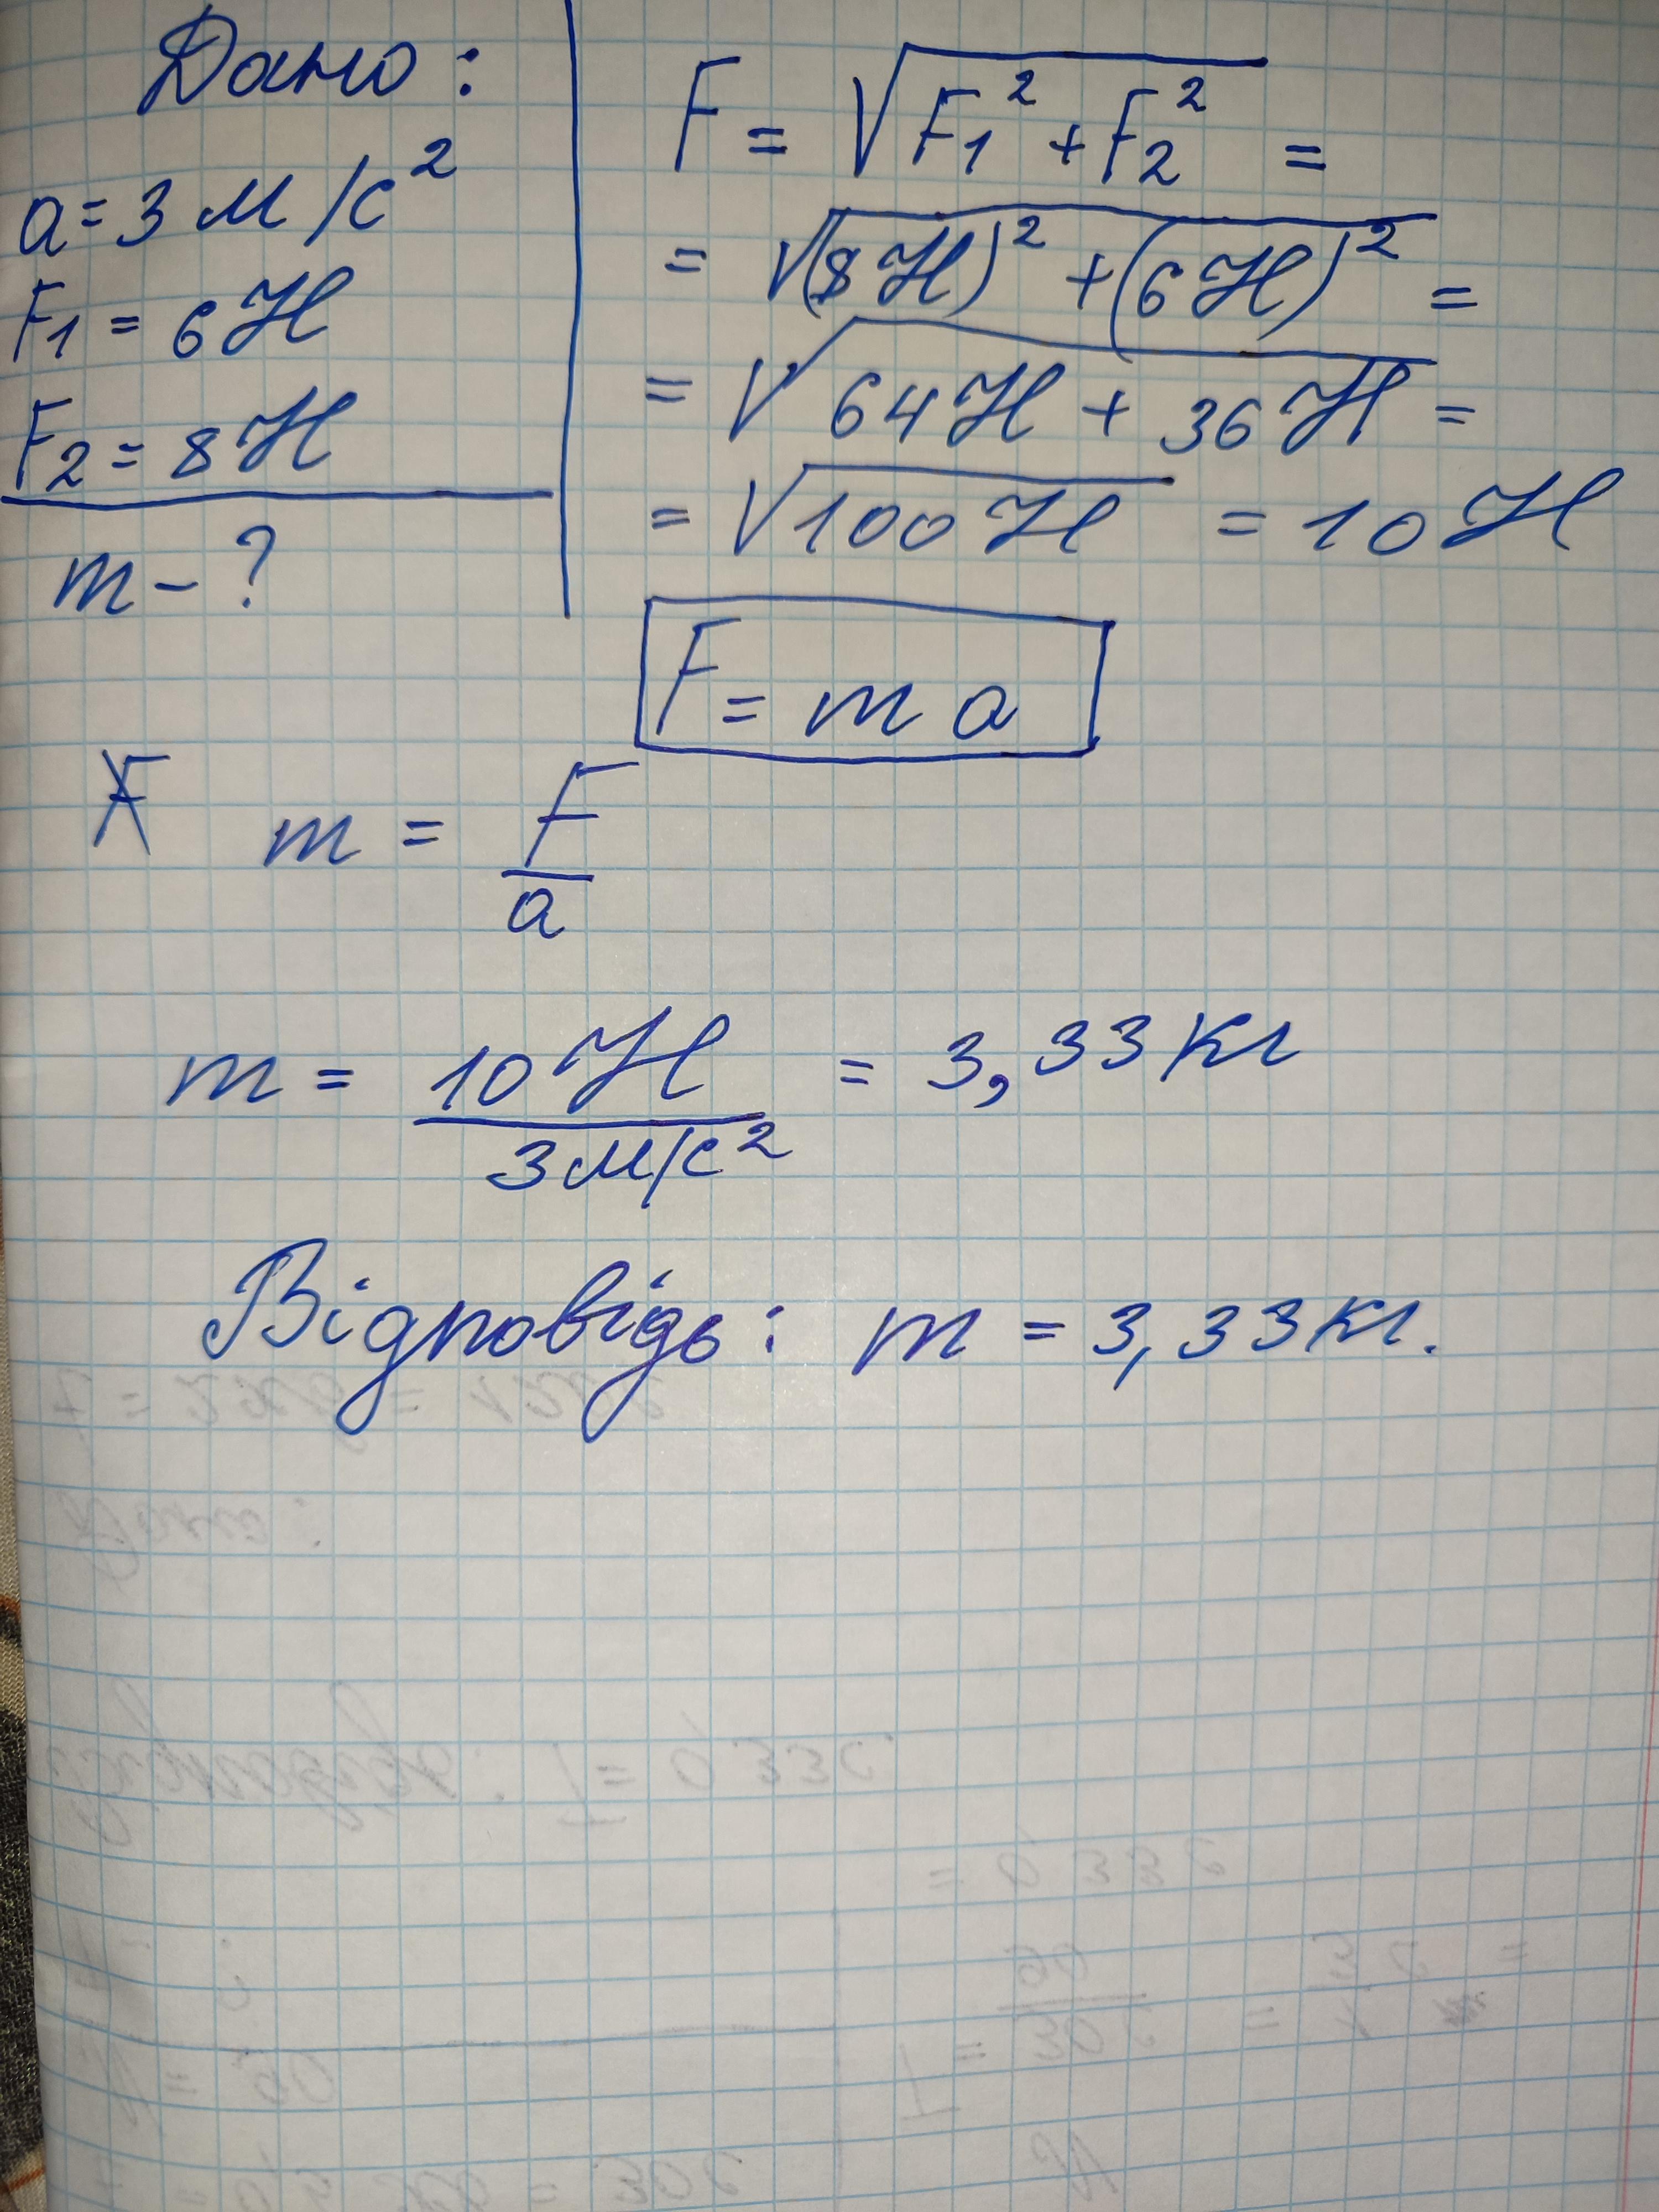 Дано:
a = 3 м/с²
F₁ = 6 Н
F₂ = 8 Н
m - ?
F = √(F₁² + F₂²) =
= √((8 Н)² + (6 Н)²) =
= √(64 Н + 36 Н) =
= √(100 Н) = 10 Н
F = m a
m = F/a
m = 10 Н / 3 м/с² = 3,33 кг
Відповідь: m = 3,33 кг.